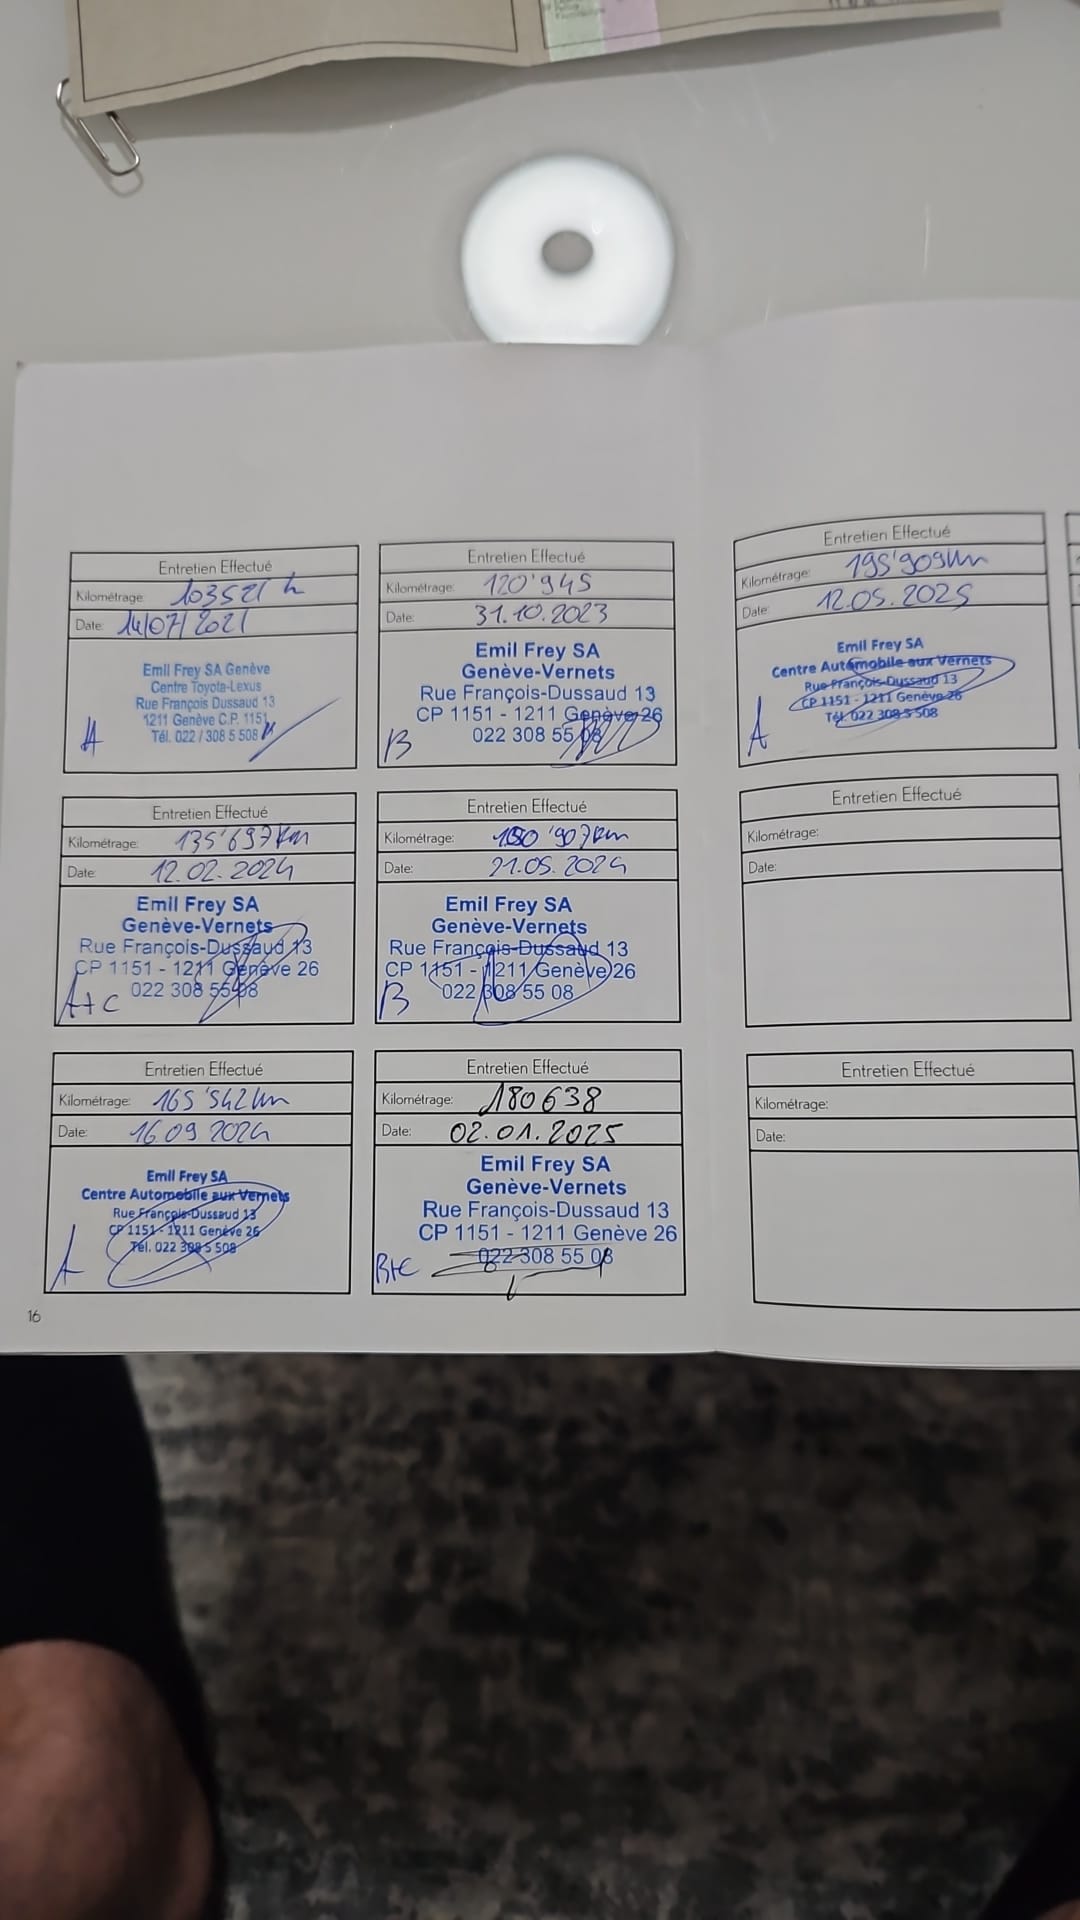 Entretien Effectué
Kilométrage: 103521 h
Date: 14/07/2021
Emil Frey SA Genève
Centre Toyota-Lexus
Rue François Dussaud 13
1211 Genève C.P. 1151
Tél. 022 / 308 5 508
A
Entretien Effectué
Kilométrage: 120'945
Date: 31.10.2023
Emil Frey SA
Genève-Vernets
Rue François-Dussaud 13
CP 1151 - 1211 Genève 26
022 308 55 08
B
Entretien Effectué
Kilométrage: 195'909km
Date: 12.05.2025
Emil Frey SA
Centre Automobile aux Vernets
Rue François-Dussaud 13
CP 1151 - 1211 Genève 26
Tél. 022 308 5 508
A
Entretien Effectué
Kilométrage: 135'697km
Date: 12.02.2024
Emil Frey SA
Genève-Vernets
Rue François-Dussaud 13
CP 1151 - 1211 Genève 26
022 308 55 08
A+C
Entretien Effectué
Kilométrage: 150'907km
Date: 21.05.2024
Emil Frey SA
Genève-Vernets
Rue François-Dussaud 13
CP 1151 - 1211 Genève 26
022 308 55 08
B
Entretien Effectué
Kilométrage:
Date:
Entretien Effectué
Kilométrage: 165'542km
Date: 16.09 2024
Emil Frey SA
Centre Automobile aux Vernets
Rue François-Dussaud 13
CP 1151 - 1211 Genève 26
Tél. 022 308 5 508
A
Entretien Effectué
Kilométrage: 180638
Date: 02.01.2025
Emil Frey SA
Genève-Vernets
Rue François-Dussaud 13
CP 1151 - 1211 Genève 26
022 308 55 08
B+C
Entretien Effectué
Kilométrage:
Date:
16